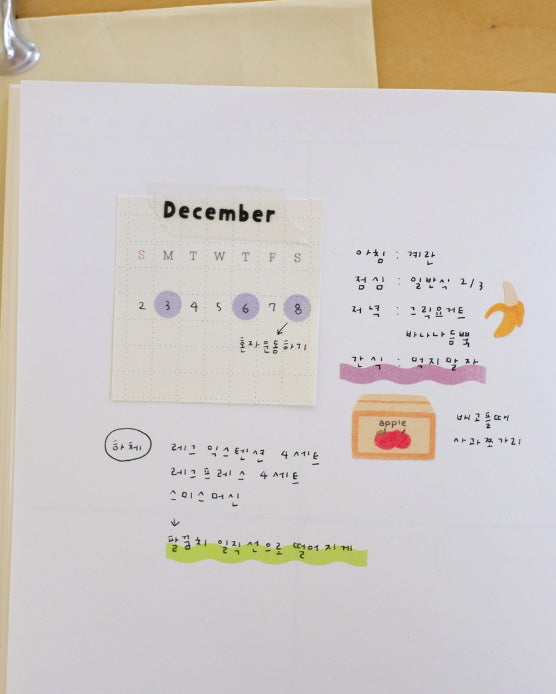 December
S M T W T F S
2 3 4 5 6 7 8
혼자운동하기
아침 : 계란
점심 : 일반식 2/3
저녁 : 그릭요거트
바나나듬뿍
간식 : 먹지말자
apple
배고플때
사과쪼가리
하체
레그 익스텐션 4세트
레그프레스 4세트
스미스머신
↓
팔꿈치 일직선으로 떨어지게